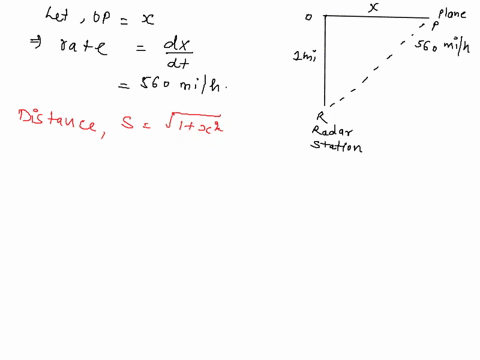 Let, OP = x
⇒ rate = dx/dt
= 560 mi/h.
Distance, S = √(1+x²)
x
O
plane
P
560 mi/h
1mi
R
Radar
Station